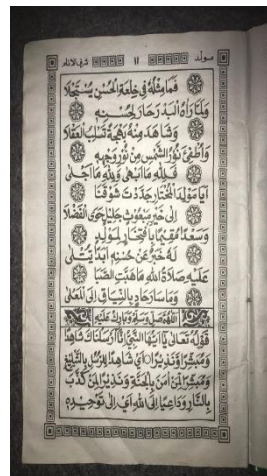 مولد ١١ شرف الانام
فَمَا مِثْلُهُ فِي خِلْعَةِ الْحُسْنِ يُسْتَجْلَا
وَلَمَّا رَاٰهُ الْبَدْرُ حَارَ لِحُسْنِهِ
وَشَاهَدَ مِنْهُ بَهْجَةً تَسْلُبُ الْعَقْلَا
وَاَطْفٰى نُوْرُ الشَّمْسِ مِنْ نُوْرِ وَجْهِهِ
فَلِلّٰهِ مَا اَبْهٰى وَلِلّٰهِ مَا اَجْلٰى
اَيَا مَوْلِدَ الْمُخْتَارِ جَدَّدْتَ شَوْقَنَا
اِلٰى خَيْرِ مَبْعُوْثٍ جَلِيْلٍ حَوَى الْفَضْلَا
وَسَعْدٌ مُقِيْمٌ بِافْتِخَارٍ لِمَوْلِدٍ
لَهُ خَبَرٌ عَنْ حُسْنِهِ اَبَدًا يُتْلٰى
عَلَيْهِ صَلَاةُ اللّٰهِ مَا هَبَّتِ الصَّبَا
وَمَا سَارَ حَادٍ بِالنِّيَاقِ اِلَى الْمَعْلٰى
اَللّٰهُمَّ صَلِّ وَسَلِّمْ وَبَارِكْ عَلَيْهِ
قَوْلُهُ تَعَالٰى يٰا اَيُّهَا النَّبِيُّ اِنَّا اَرْسَلْنَاكَ شَاهِدًا
وَمُبَشِّرًا وَنَذِيْرًا اَيْ شَاهِدًا لِلرُّسُلِ بِالتَّبْلِيْغِ
وَمُبَشِّرًا لِمَنْ اٰمَنَ بِالْجَنَّةِ وَنَذِيْرًا لِمَنْ كَذَّبَ
بِالنَّارِ وَدَاعِيًا اِلَى اللّٰهِ اَيْ اِلٰى تَوْحِيْدِهِ